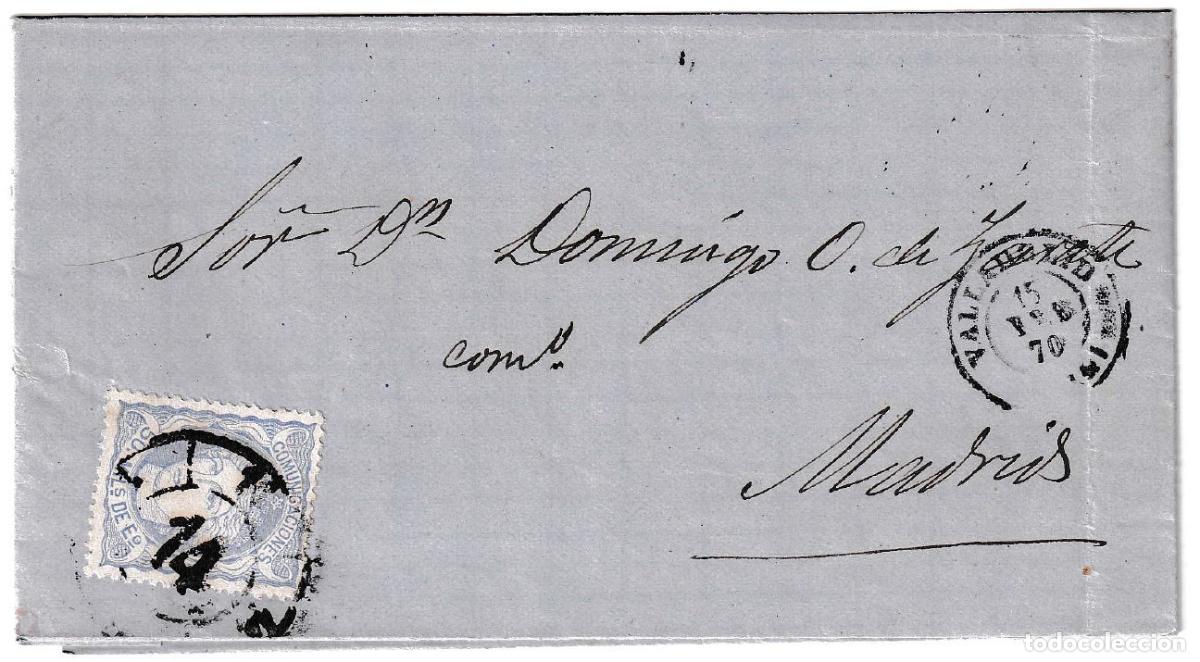 Sor Dn Domingo O. de Zarate
como.
Madrid
VALLADOLID
15
FEB
70
COMUNICACIONES
50 MILS DE Eo
todocoleccion